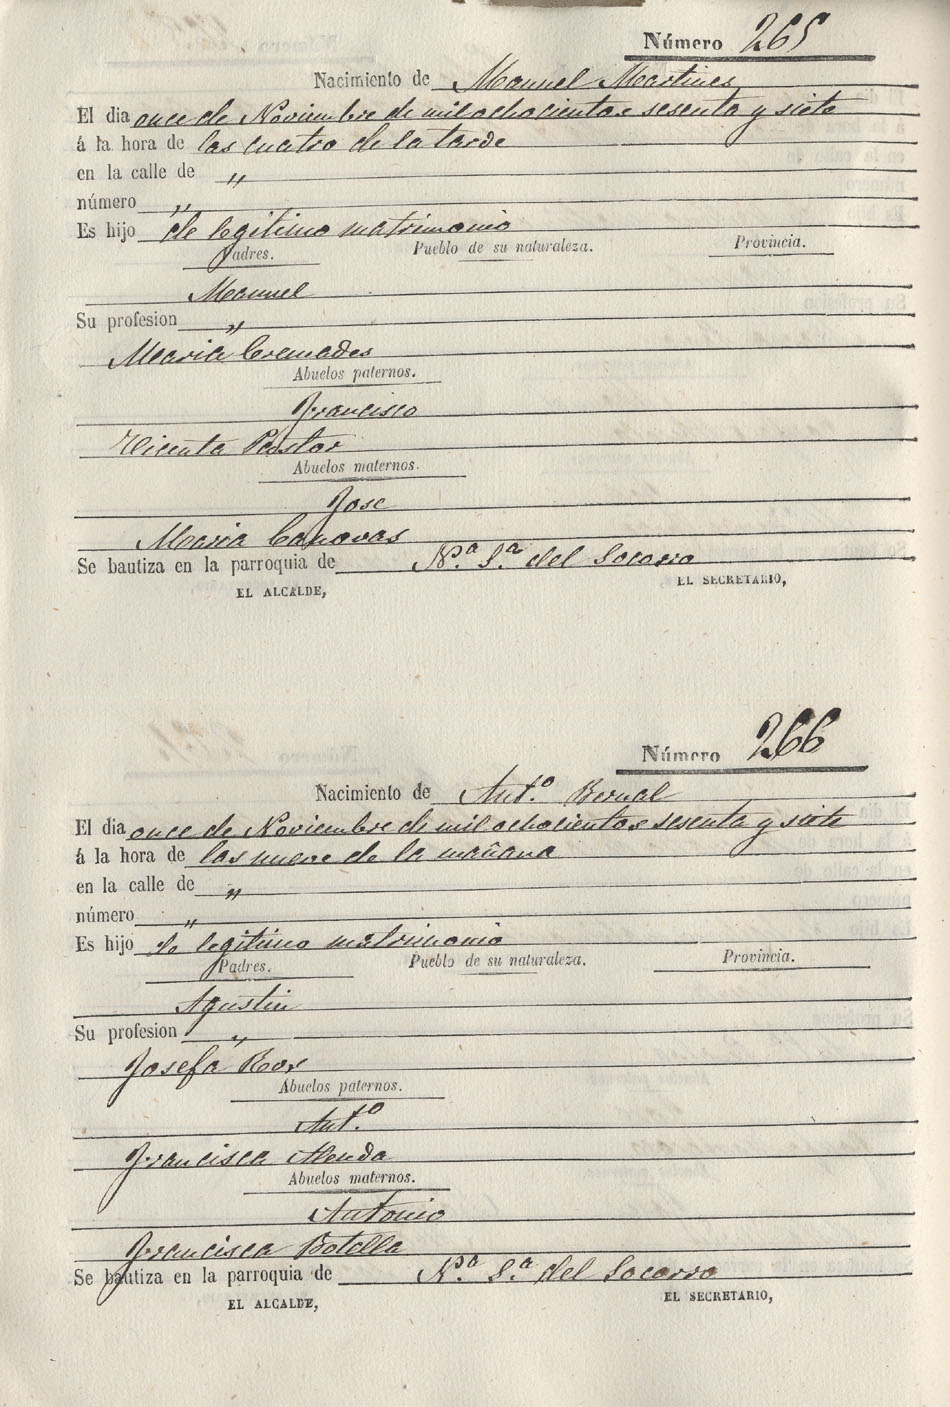 Número 265
Nacimiento de Manuel Martines
El dia once de Noviembre de mil ochocientos sesenta y siete
á la hora de las cuatro de la tarde
en la calle de „
número „
Es hijo de legitimo matrimonio
Padres. Pueblo de su naturaleza. Provincia.
Manuel
Su profesion „
Maria Cremades
Abuelos paternos.
Francisco
Vicenta Pastor
Abuelos maternos.
Jose
Maria Canovas
Se bautiza en la parroquia de Nª. Sª. del Socorro
EL ALCALDE, EL SECRETARIO,
Número 266
Nacimiento de Antº. Bernal
El dia once de Noviembre de mil ochocientos sesenta y siete
á la hora de las nueve de la mañana
en la calle de „
número „
Es hijo de legitimo matrimonio
Padres. Pueblo de su naturaleza. Provincia.
Agustin
Su profesion „
Josefa Ros
Abuelos paternos.
Antº.
Francisca Alenda
Abuelos maternos.
Antonio
Francisca Botella
Se bautiza en la parroquia de Nª. Sª. del Socorro
EL ALCALDE, EL SECRETARIO,